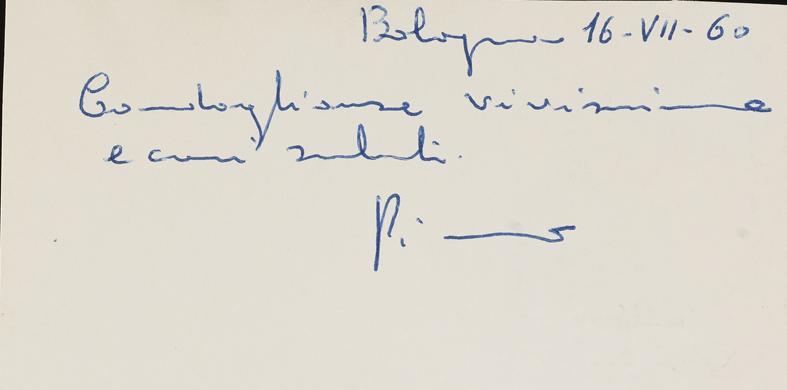 Bologna 16-VII-60
Condoglianze vivissime
e cari saluti.